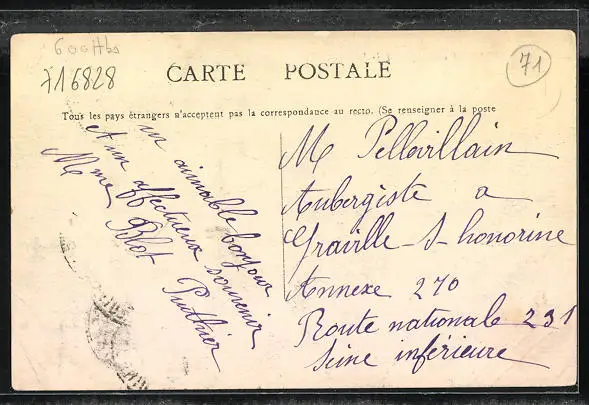 600 Hbs
716828
71
CARTE POSTALE
Tous les pays étrangers n'acceptent pas la correspondance au recto. (Se renseigner à la poste
un aimable bonjour
et un affectueux souvenir
Mme Blot
M Pellevillain
Aubergiste a
Graville-S-honorine
Annexe 270
Route nationale 231
Seine inférieure